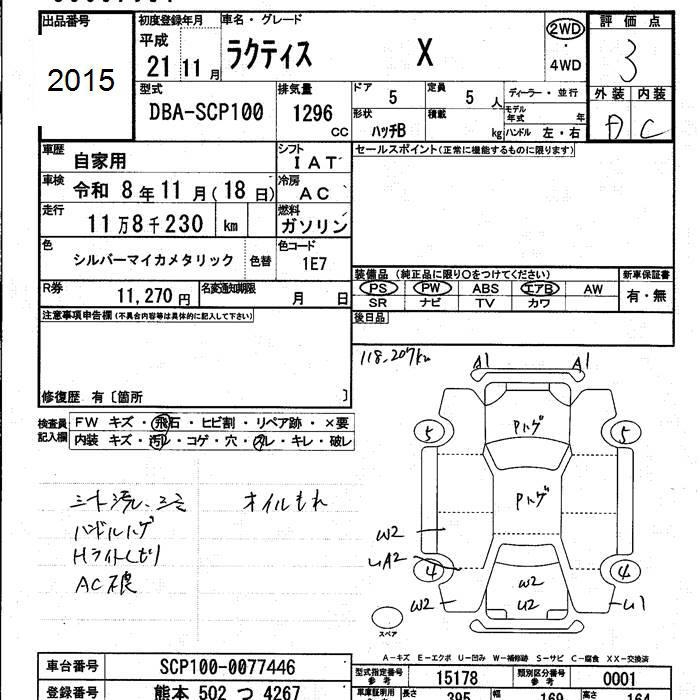 出品番号
2015
初度登録年月
平成
21 11 月
車名・グレード
ラクティス X
2WD
・
4WD
評価点
3
型式
DBA-SCP100
排気量
1296
CC
ドア
5
定員
5 人
形状
ハッチB
積載
kg
ディーラー・並行
モデル年式 年
ハンドル 左・右
外装 内装
D C
車歴
自家用
シフト
IAT
セールスポイント(正常に機能するものに限ります)
車検
令和 8 年 11 月(18 日)
冷房
AC
走行
11万8千230 km
燃料
ガソリン
色
シルバーマイカメタリック
色替
色コード
1E7
装備品(純正品に限り○をつけてください)
新車保証書
R券
11,270 円
名変通知期限
月 日
PS PW ABS エアB AW
SR ナビ TV カワ
有・無
注意事項申告欄(不具合内容等は具体的に記入して下さい)
後日品
118,207km
修復歴 有〔箇所 〕
検査員記入欄
FW キズ・飛石・ヒビ割・リペア跡・×要
内装 キズ・汚レ・コゲ・穴・スレ・キレ・破レ
シート汚レ、シミ
ハンドルハゲ
Hライトくもり
AC不良
オイルもれ
A1 A1
Pハゲ
5 5
Pハゲ
W2
UA2
4 4
W2
W2
U2
U1
スペア
A-キズ E-エクボ U-凹み W-補修跡 S-サビ C-腐食 XX-交換済
車台番号
SCP100-0077446
型式指定番号
参考
15178
類別区分番号
参考
0001
登録番号
熊本 502 つ 4267
車庫証明用
参考
長さ
395
幅
169
高さ
164